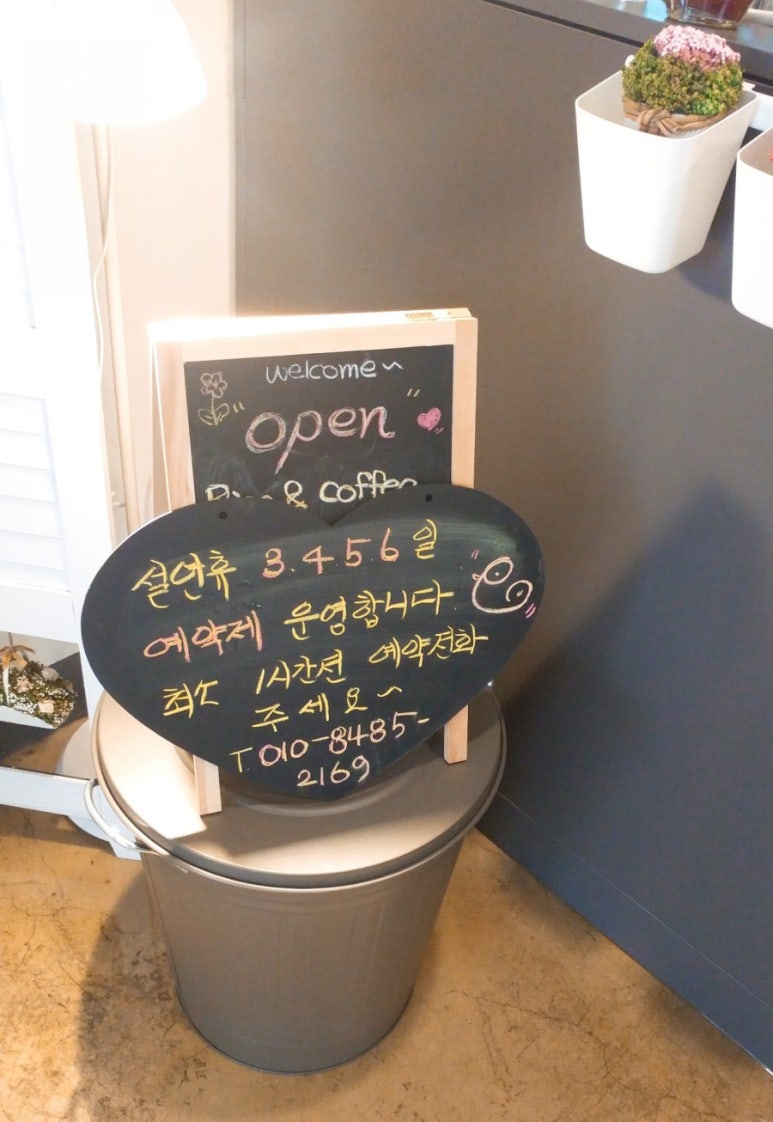 welcome~
"open"
& coffee
설연휴 3.4.5.6일
예약제 운영합니다
최소 1시간전 예약전화
주세요~
T.010-8485-
2169